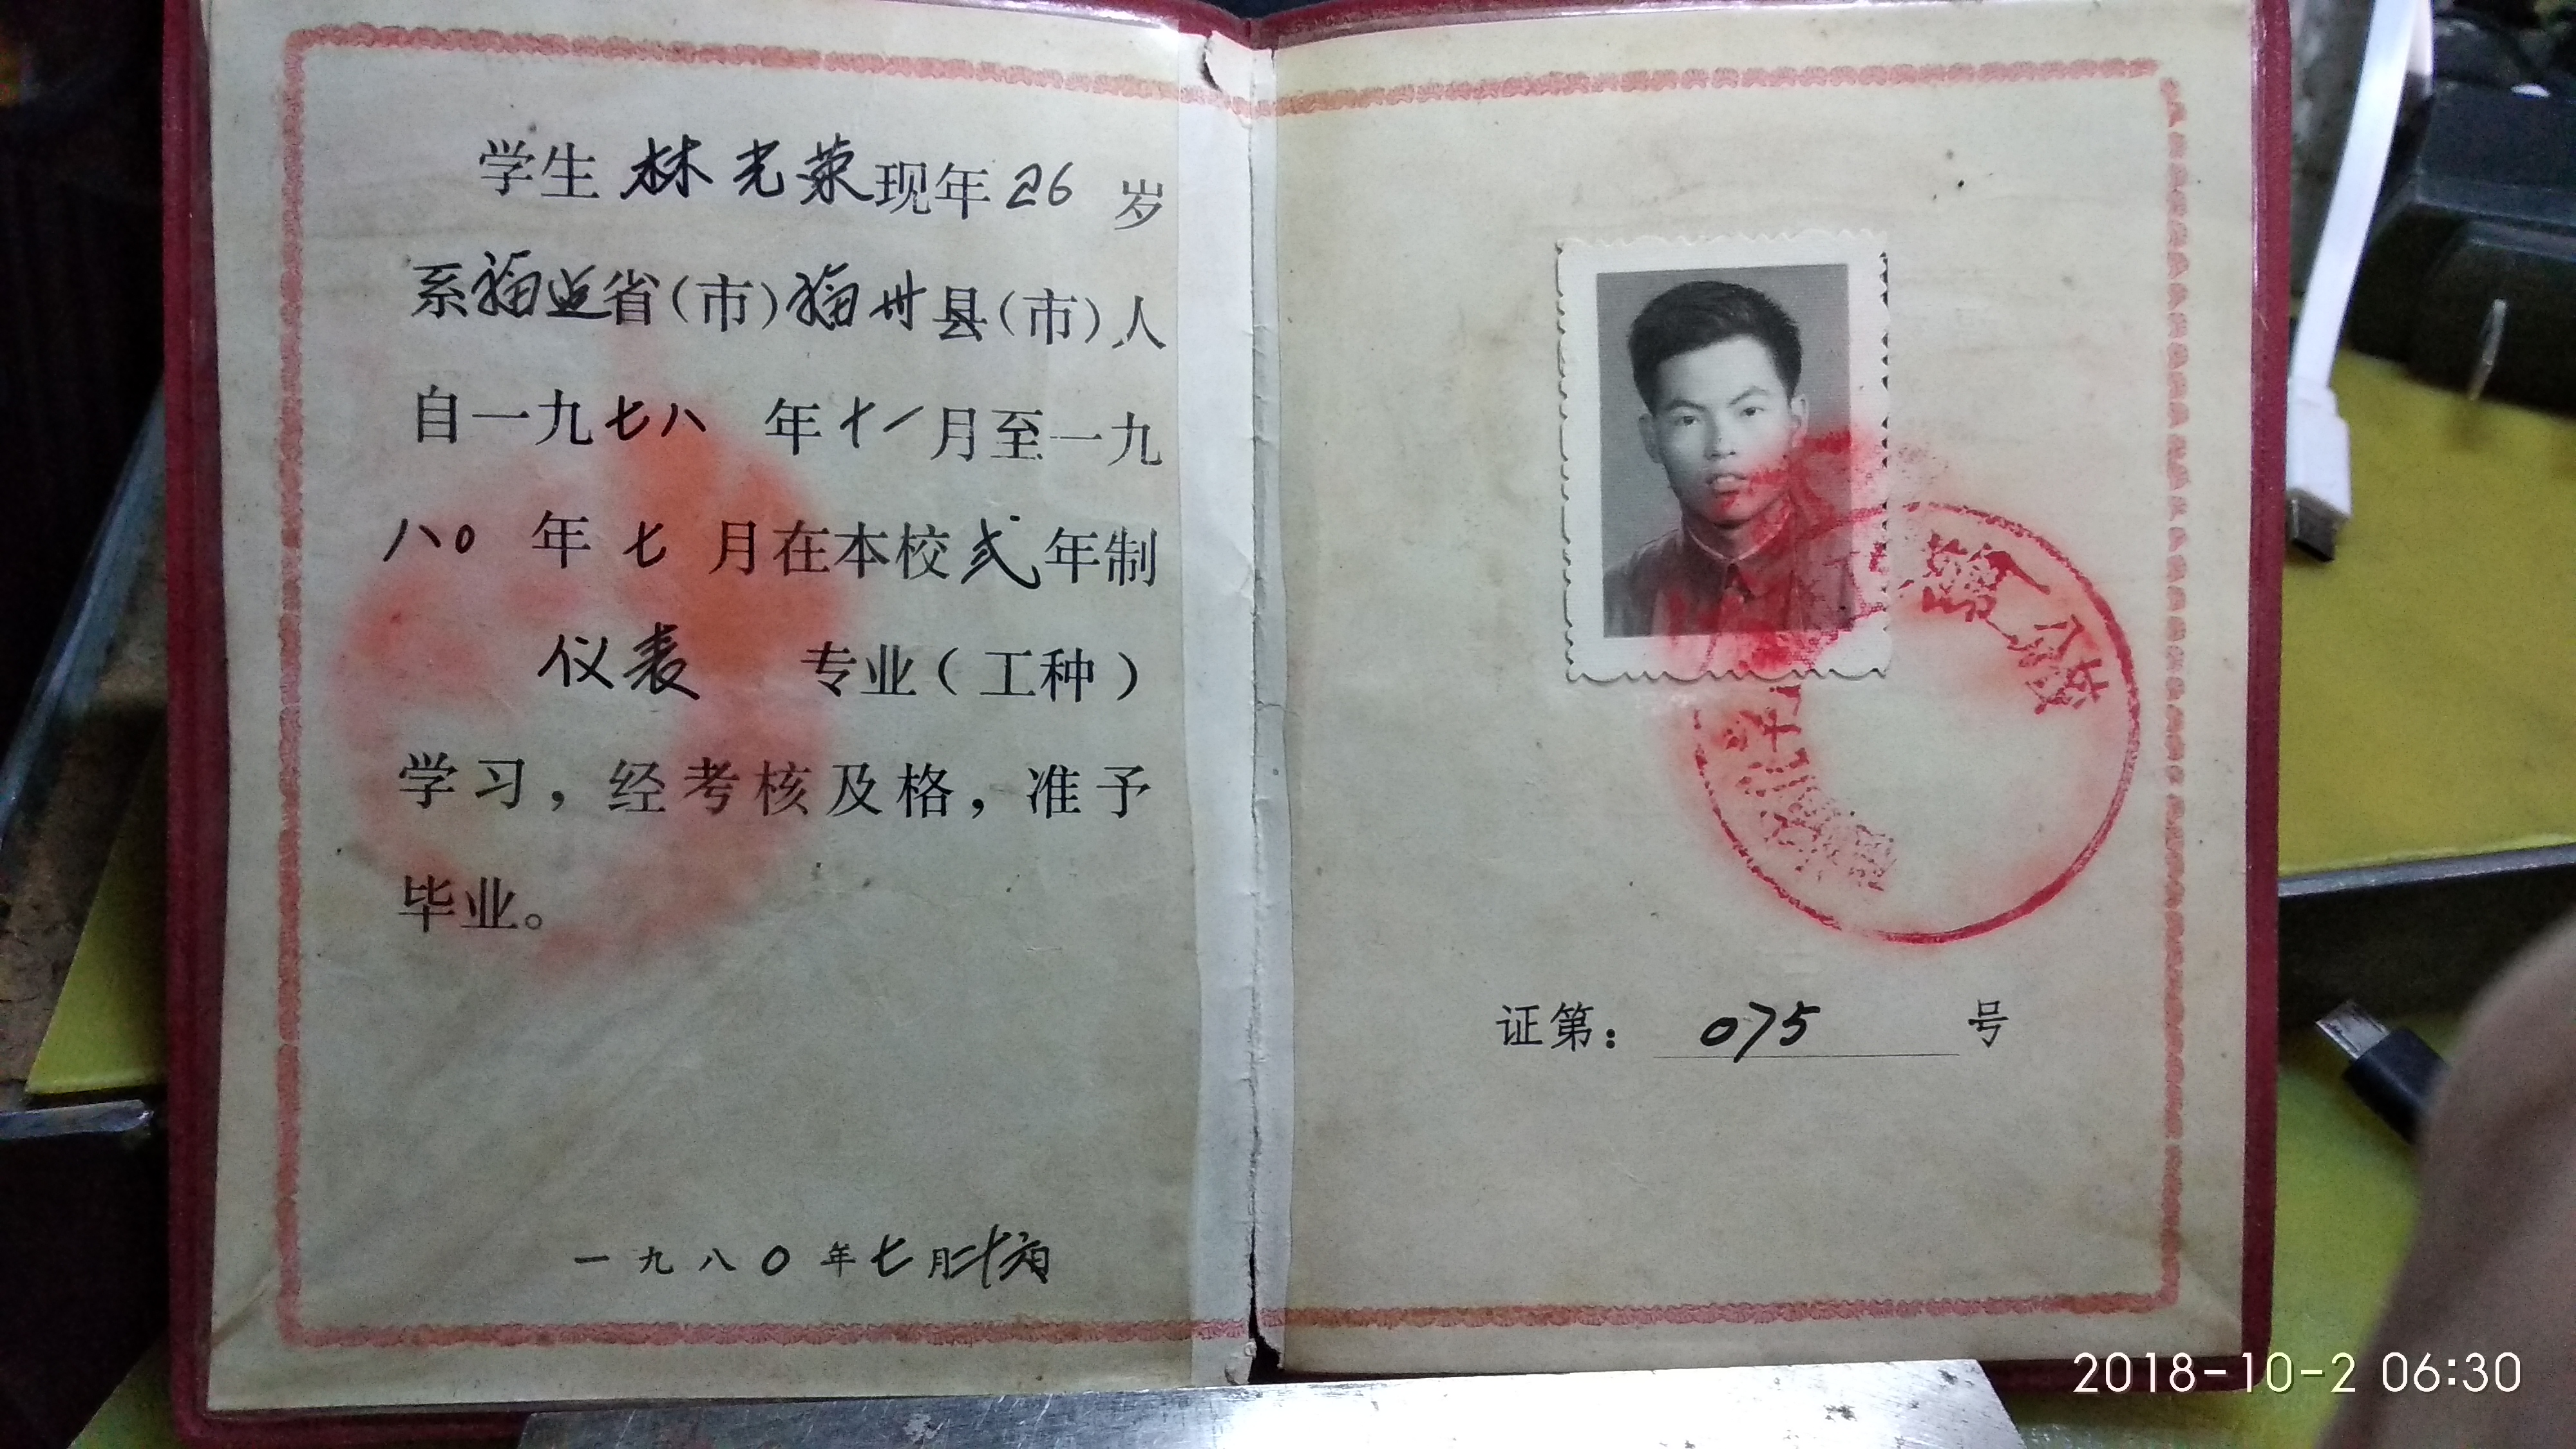 学生林光荣现年26岁
系福建省(市)福州县(市)人
自一九七八年十一月至一九
八〇年七月在本校弍年制
仪表专业(工种)
学习,经考核及格,准予
毕业。
一九八〇年七月二十六日
证第:075号
2018-10-2 06:30